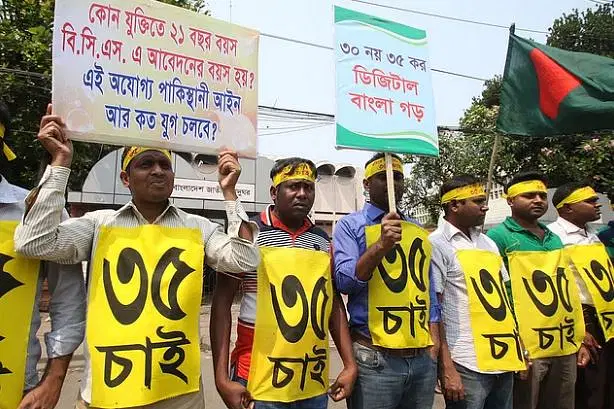 কোন যুক্তিতে ২১ বছর বয়স
বি.সি.এস. এ আবেদনের বয়স হয়?
এই অযোগ্য পাকিস্থানী আইন
আর কত যুগ চলবে?
৩০ নয় ৩৫ কর
ডিজিটাল
বাংলা গড়
বাংলাদেশ জাতীয়
৩৫
চাই
৩৫
চাই
৩৫
চাই
৩৫
চাই
৩৫
চাই
৩৫
চাই